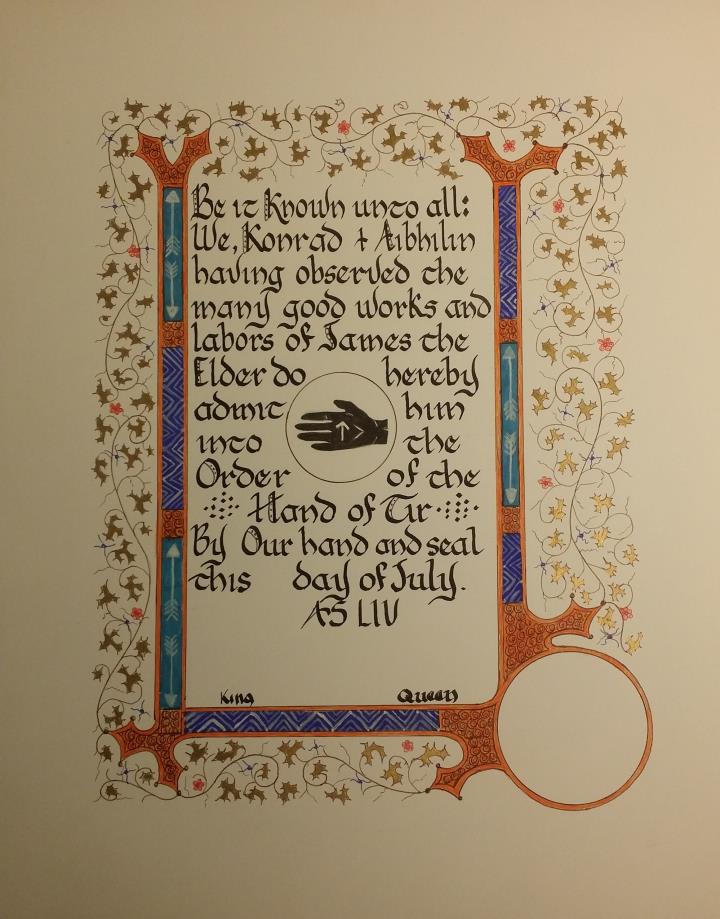 Be it Known unto all:
We, Konrad + Aibhilin
having observed the
many good works and
labors of James the
Elder do hereby
admit him
into the
Order of the
Hand of Tir
By Our hand and seal
this day of July.
AS LIV
King Queen